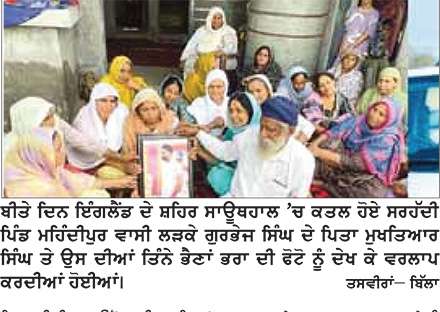 ਬੀਤੇ ਦਿਨ ਇੰਗਲੈਂਡ ਦੇ ਸ਼ਹਿਰ ਸਾਊਥਹਾਲ ’ਚ ਕਤਲ ਹੋਏ ਸਰਹੱਦੀ
ਪਿੰਡ ਮਹਿੰਦੀਪੁਰ ਵਾਸੀ ਲੜਕੇ ਗੁਰਭੇਜ ਸਿੰਘ ਦੇ ਪਿਤਾ ਮੁਖਤਿਆਰ
ਸਿੰਘ ਤੇ ਉਸ ਦੀਆਂ ਤਿੰਨੇ ਭੈਣਾਂ ਭਰਾ ਦੀ ਫੋਟੋ ਨੂੰ ਦੇਖ ਕੇ ਵਰਲਾਪ
ਕਰਦੀਆਂ ਹੋਈਆਂ। ਤਸਵੀਰਾਂ– ਬਿੱਲਾ